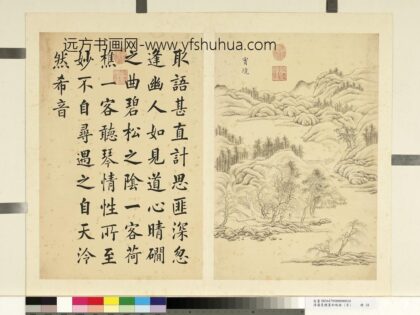 远方书画网-www.yfshuhua.com
實境
取語甚直計思匪深忽
逢幽人如見道心晴澗
之曲碧松之陰一客荷
樵一客聽琴情性所至
妙不自尋遇之自天泠
然希音